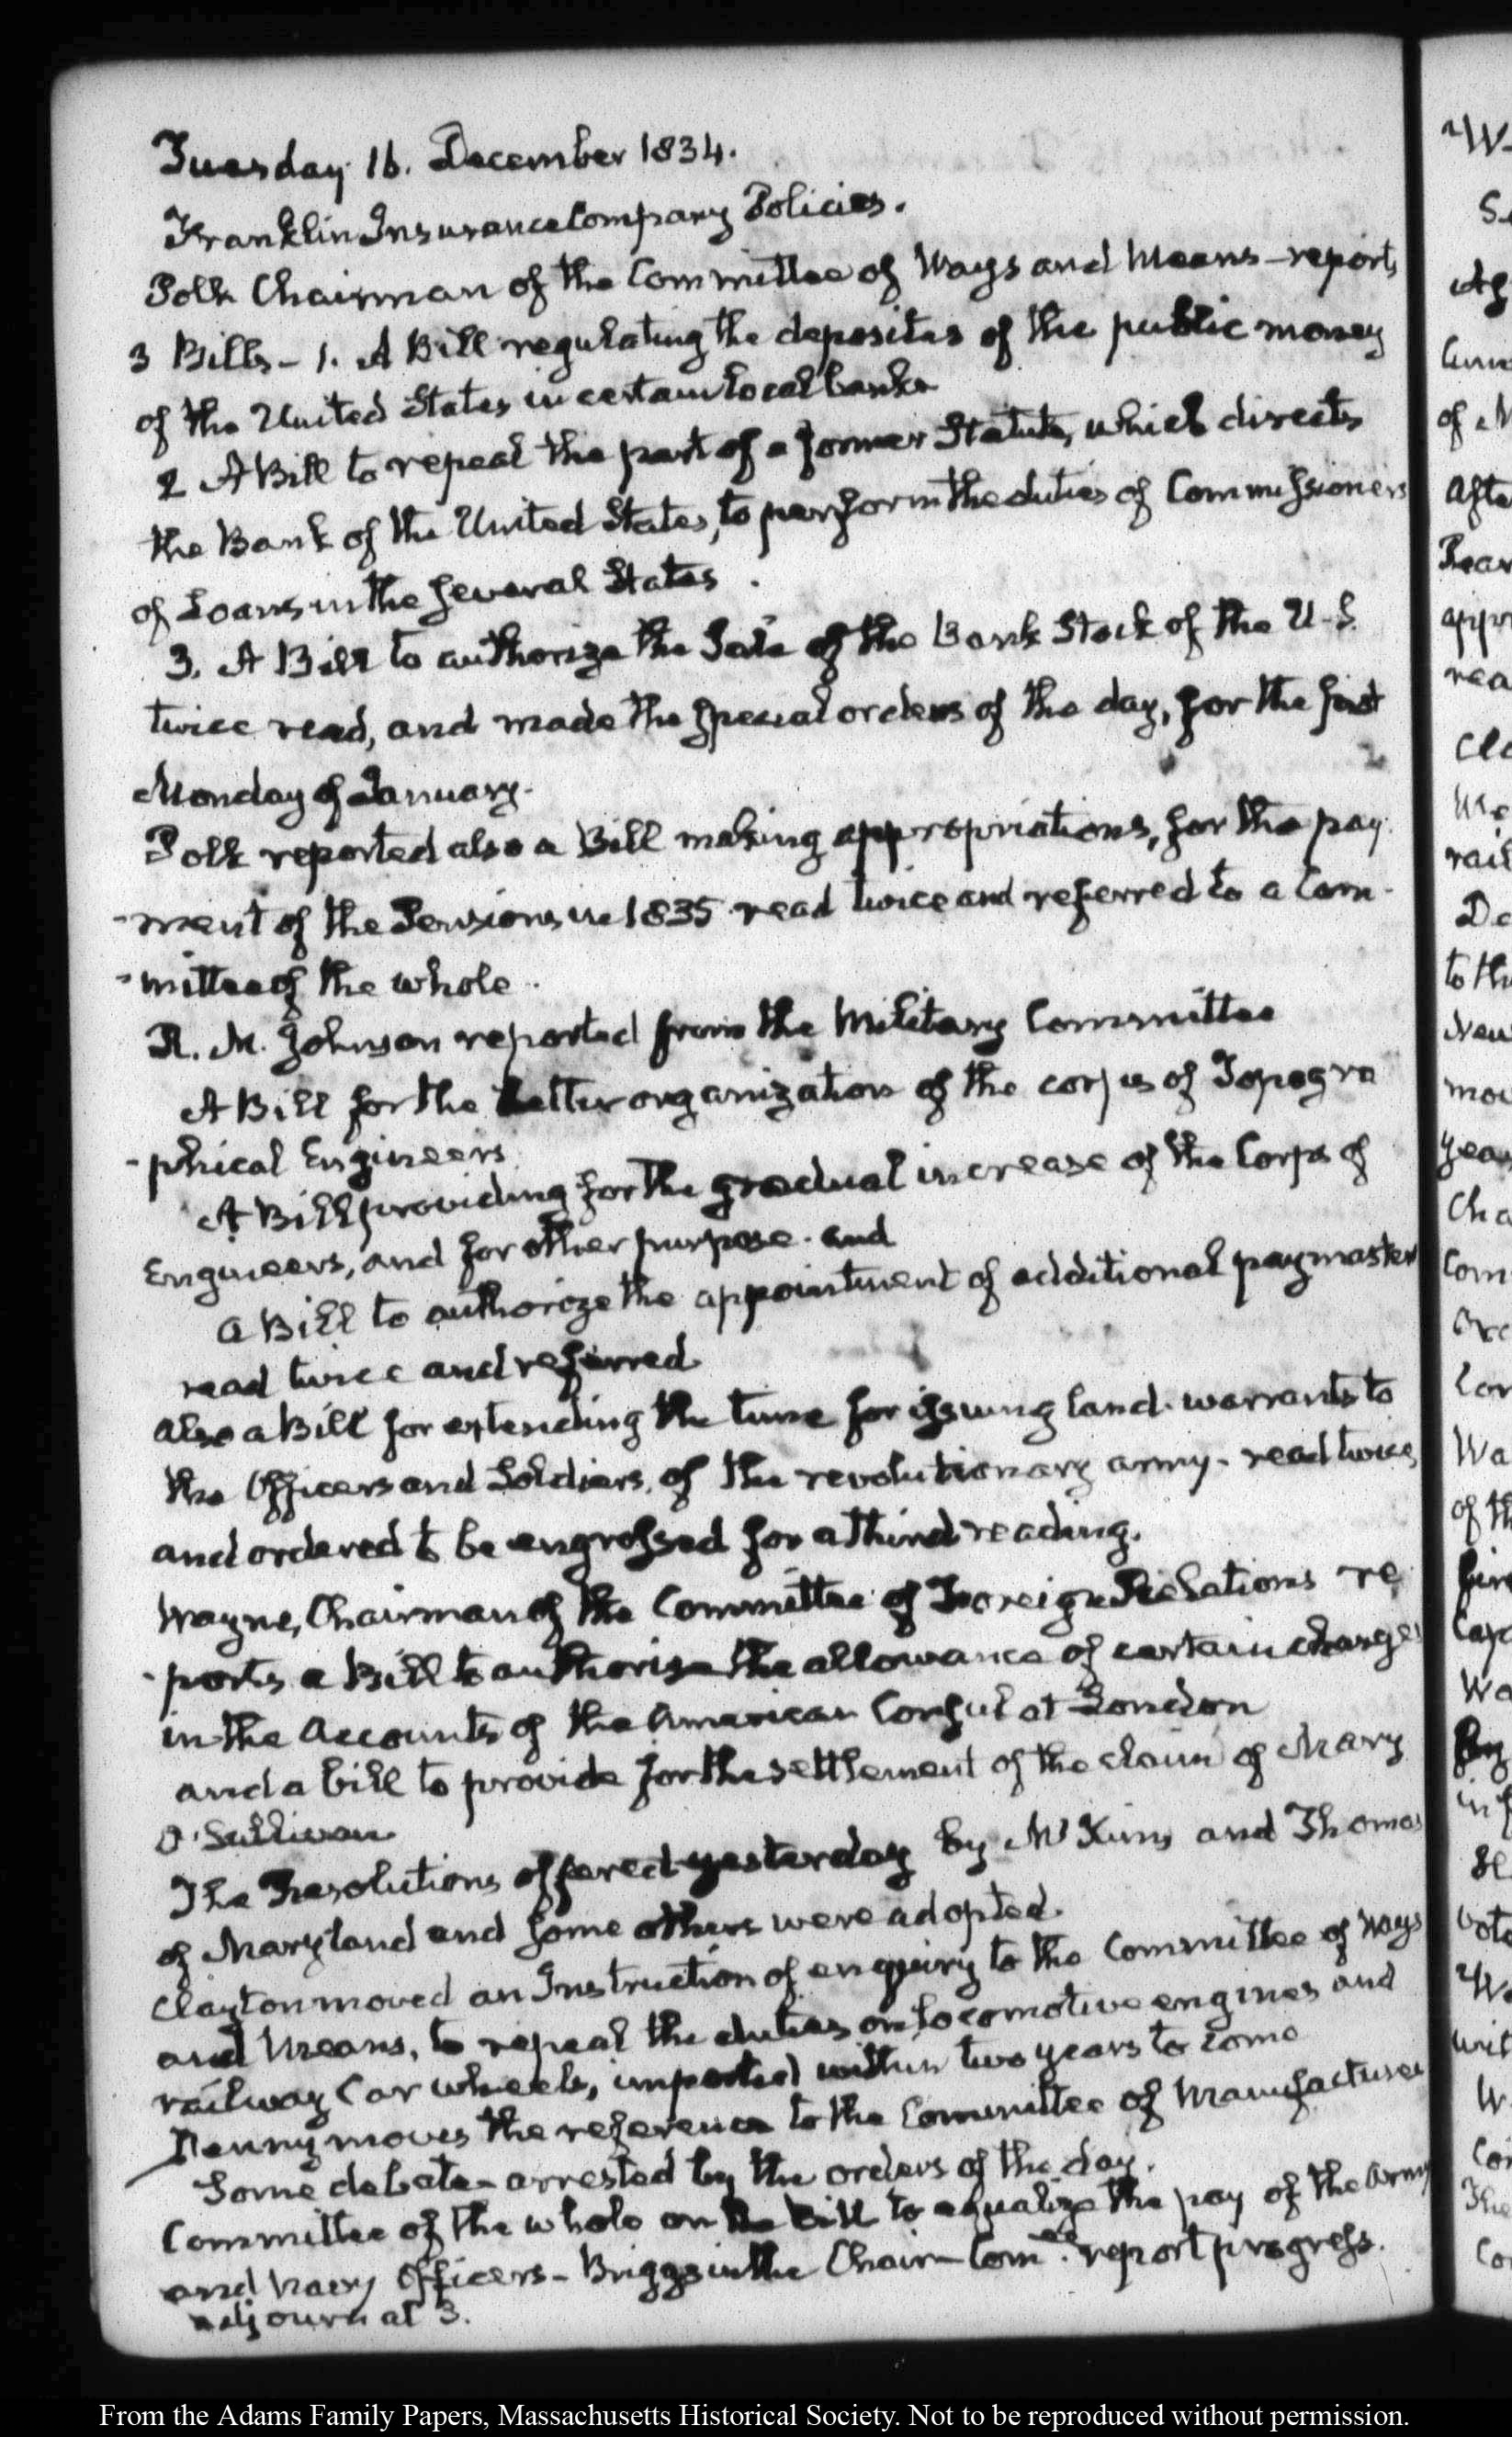 Tuesday 16. December 1834.
Franklin Insurance Company Policies.
Polk Chairman of the Committee of Ways and Means — reports
3 Bills — 1. A Bill regulating the deposites of the public money
of the United States, in certain local banks
2 A Bill to repeal the part of a former Statute, which directs
the Bank of the United States, to perform the duties of Commissioners
of Loans in the several States.
3. A Bill to authorize the Sale of the Bank Stock of the U.S.
twice read, and made the special orders of the day, for the first
Monday of January.
Polk reported also a Bill making appropriations, for the pay
-ment of the Pensions in 1835 read twice and referred to a Com-
-mittee of the whole.
R. M. Johnson reported from the Military Committee
A Bill for the better organization of the corps of Topogra
-phical Engineers
A Bill providing for the gradual increase of the Corps of
Engineers, and for other purpose. and
a Bill to authorize the appointment of additional paymasters
read twice and referred
also a Bill for extending the time for issuing land warrants to
the Officers and Soldiers, of the revolutionary army - read twice,
and ordered to be engrossed for a third reading.
Wayne, Chairman of the Committee of Foreign Relations re
-ports a Bill to authorise the allowance of certain charges
in the Accounts of the American Consul at London
and a bill to provide for the settlement of the claim of Mary
O'Sullivan
The Resolutions offered yesterday by McKim and Thomas
of Maryland and some others were adopted.
Clayton moved an Instruction of enquiry to the Committee of Ways
and Means, to repeal the duties on locomotive engines and
railway Car wheels, imported within two years to come
Denny moves the reference to the Committee of Manufactures
Some debate - arrested by the orders of the day.
Committee of the whole on the Bill to equalize the pay of the Army
and Navy Officers - Briggs in the Chair - Com.ee report progress.
adjourn at 3.
From the Adams Family Papers, Massachusetts Historical Society. Not to be reproduced without permission.